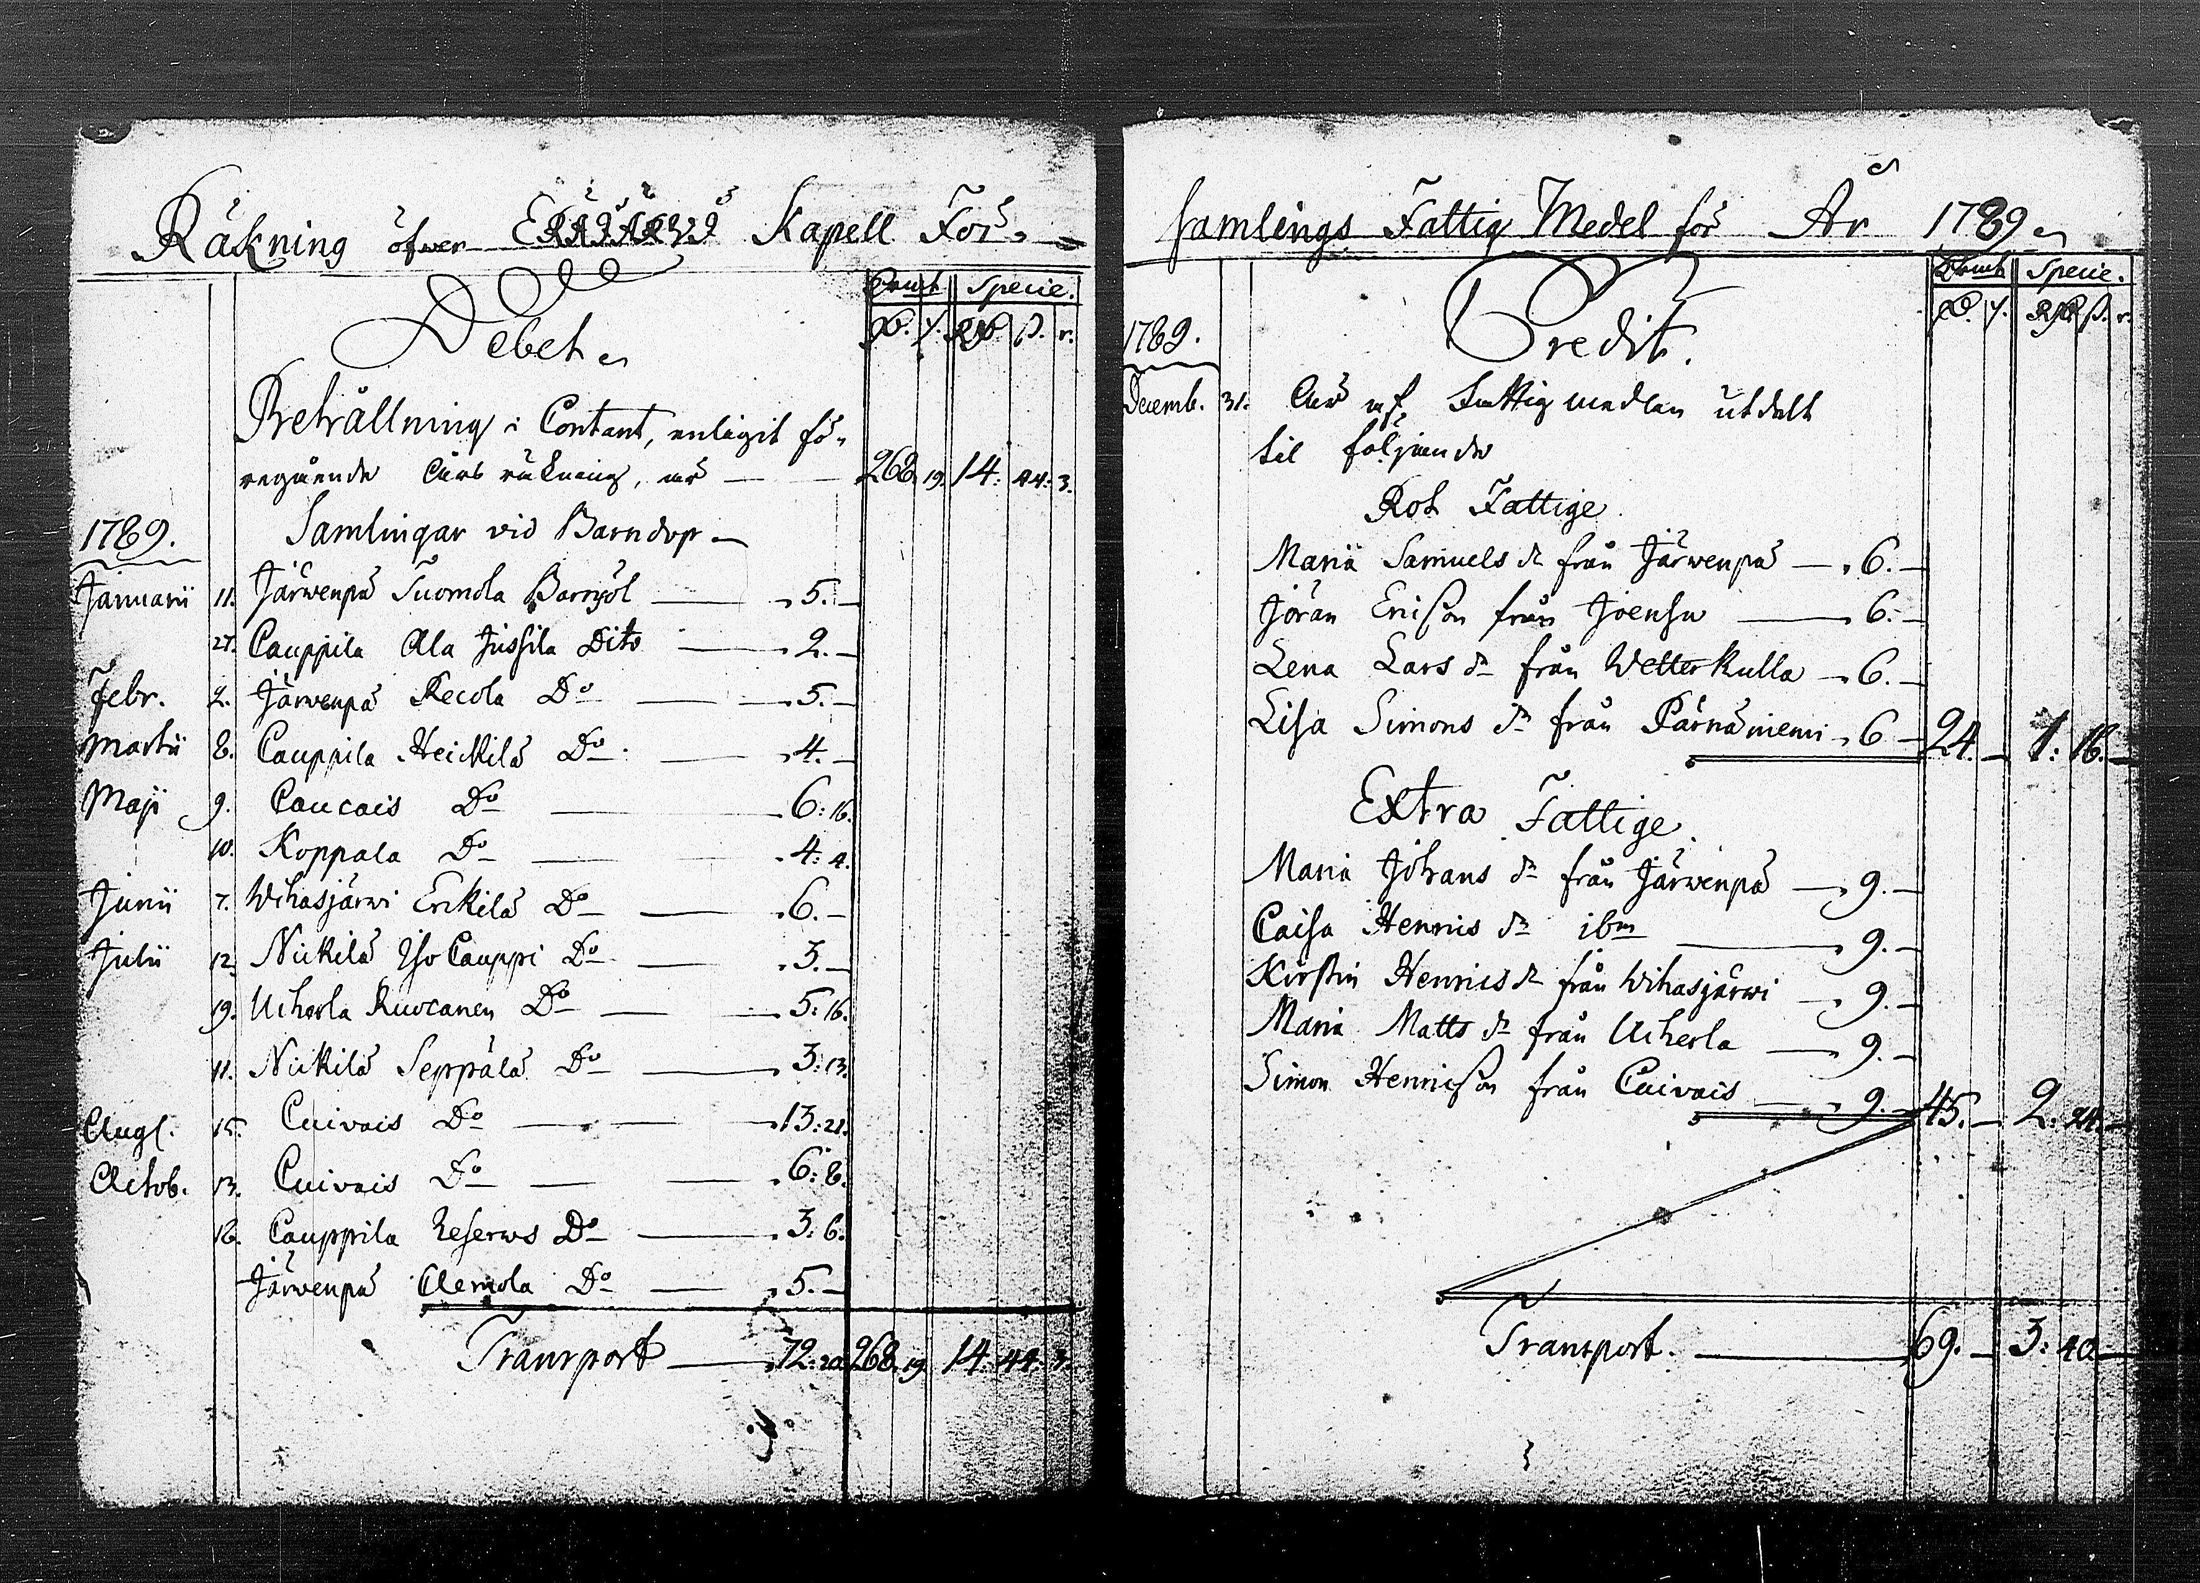 Räkning öfwer ERÄJÄRVI Kapell För-
Debet
Courb Specie.
D. r. RD. ß. r.
Behållning i Contant, enligit fö-
regående Års räkning, är 268. 19. 14. 44. 3.
1789.
Samlingar vid Barndop
Januarii 11. Järwenpä Tuomola Barnsöl 5. –
27. Cauppila Ala Jussila Dito 2. –
Febr. 2. Järwenpä Recola Do 5. –
Martii 8. Cauppila Heickilä Do 4. –
Maji 9. Caucais Do 6: 16.
10. Koppala Do 4: 4.
Junii 7. Wihasjärwi Erkilä Do 6. –
Julii 12. Nickilä Iso Cauppi Do 3. –
19. Uiherla Ruocanen Do 5: 16.
11. Nickilä Seppälä Do 3: 13.
Aug. 15. Cuivais Do 13: 21.
Octob. 13. Cuivais Do 6: 8.
18. Cauppila Reserws Do 3: 6.
Järwenpä Aemola Do 5. –
Transport 72: 20. 268. 19. 14. 44. 3.
samlings Fattig Medel för År 1789
Credit.
Courb Specie.
D. r. RD. ß. r.
1789.
Decemb. 31. Är af Fattigmedlen utdelt
til följande
Rot Fattige.
Maria Samuels dr från Järwenpä 6. –
Jöran Ericsson från Joensu 6. –
Lena Lars dr från Wetterkulla 6. –
Lisa Simons dr från Pärnäniemi 6 – 24. – 1: 16. –
Extra Fattige.
Maria Johans dr från Järwenpä 9. –
Caisa Henrics dr ibm 9. –
Kirstin Henrics dr från Wihasjärwi 9. –
Maria Matts dr från Uiherla 9. –
Simon Henricsson från Cuivais 9. – 45. – 2: 24. –
Transport. 69. – 3: 40. –